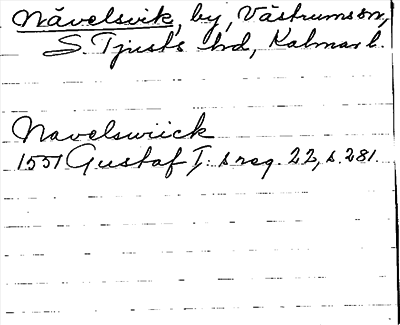 Nävelsvik, by, Västrums sn,
S. Tjusts hd, Kalmar l.
Navelswiick
1551 Gustaf I:s reg. 22, s. 281.